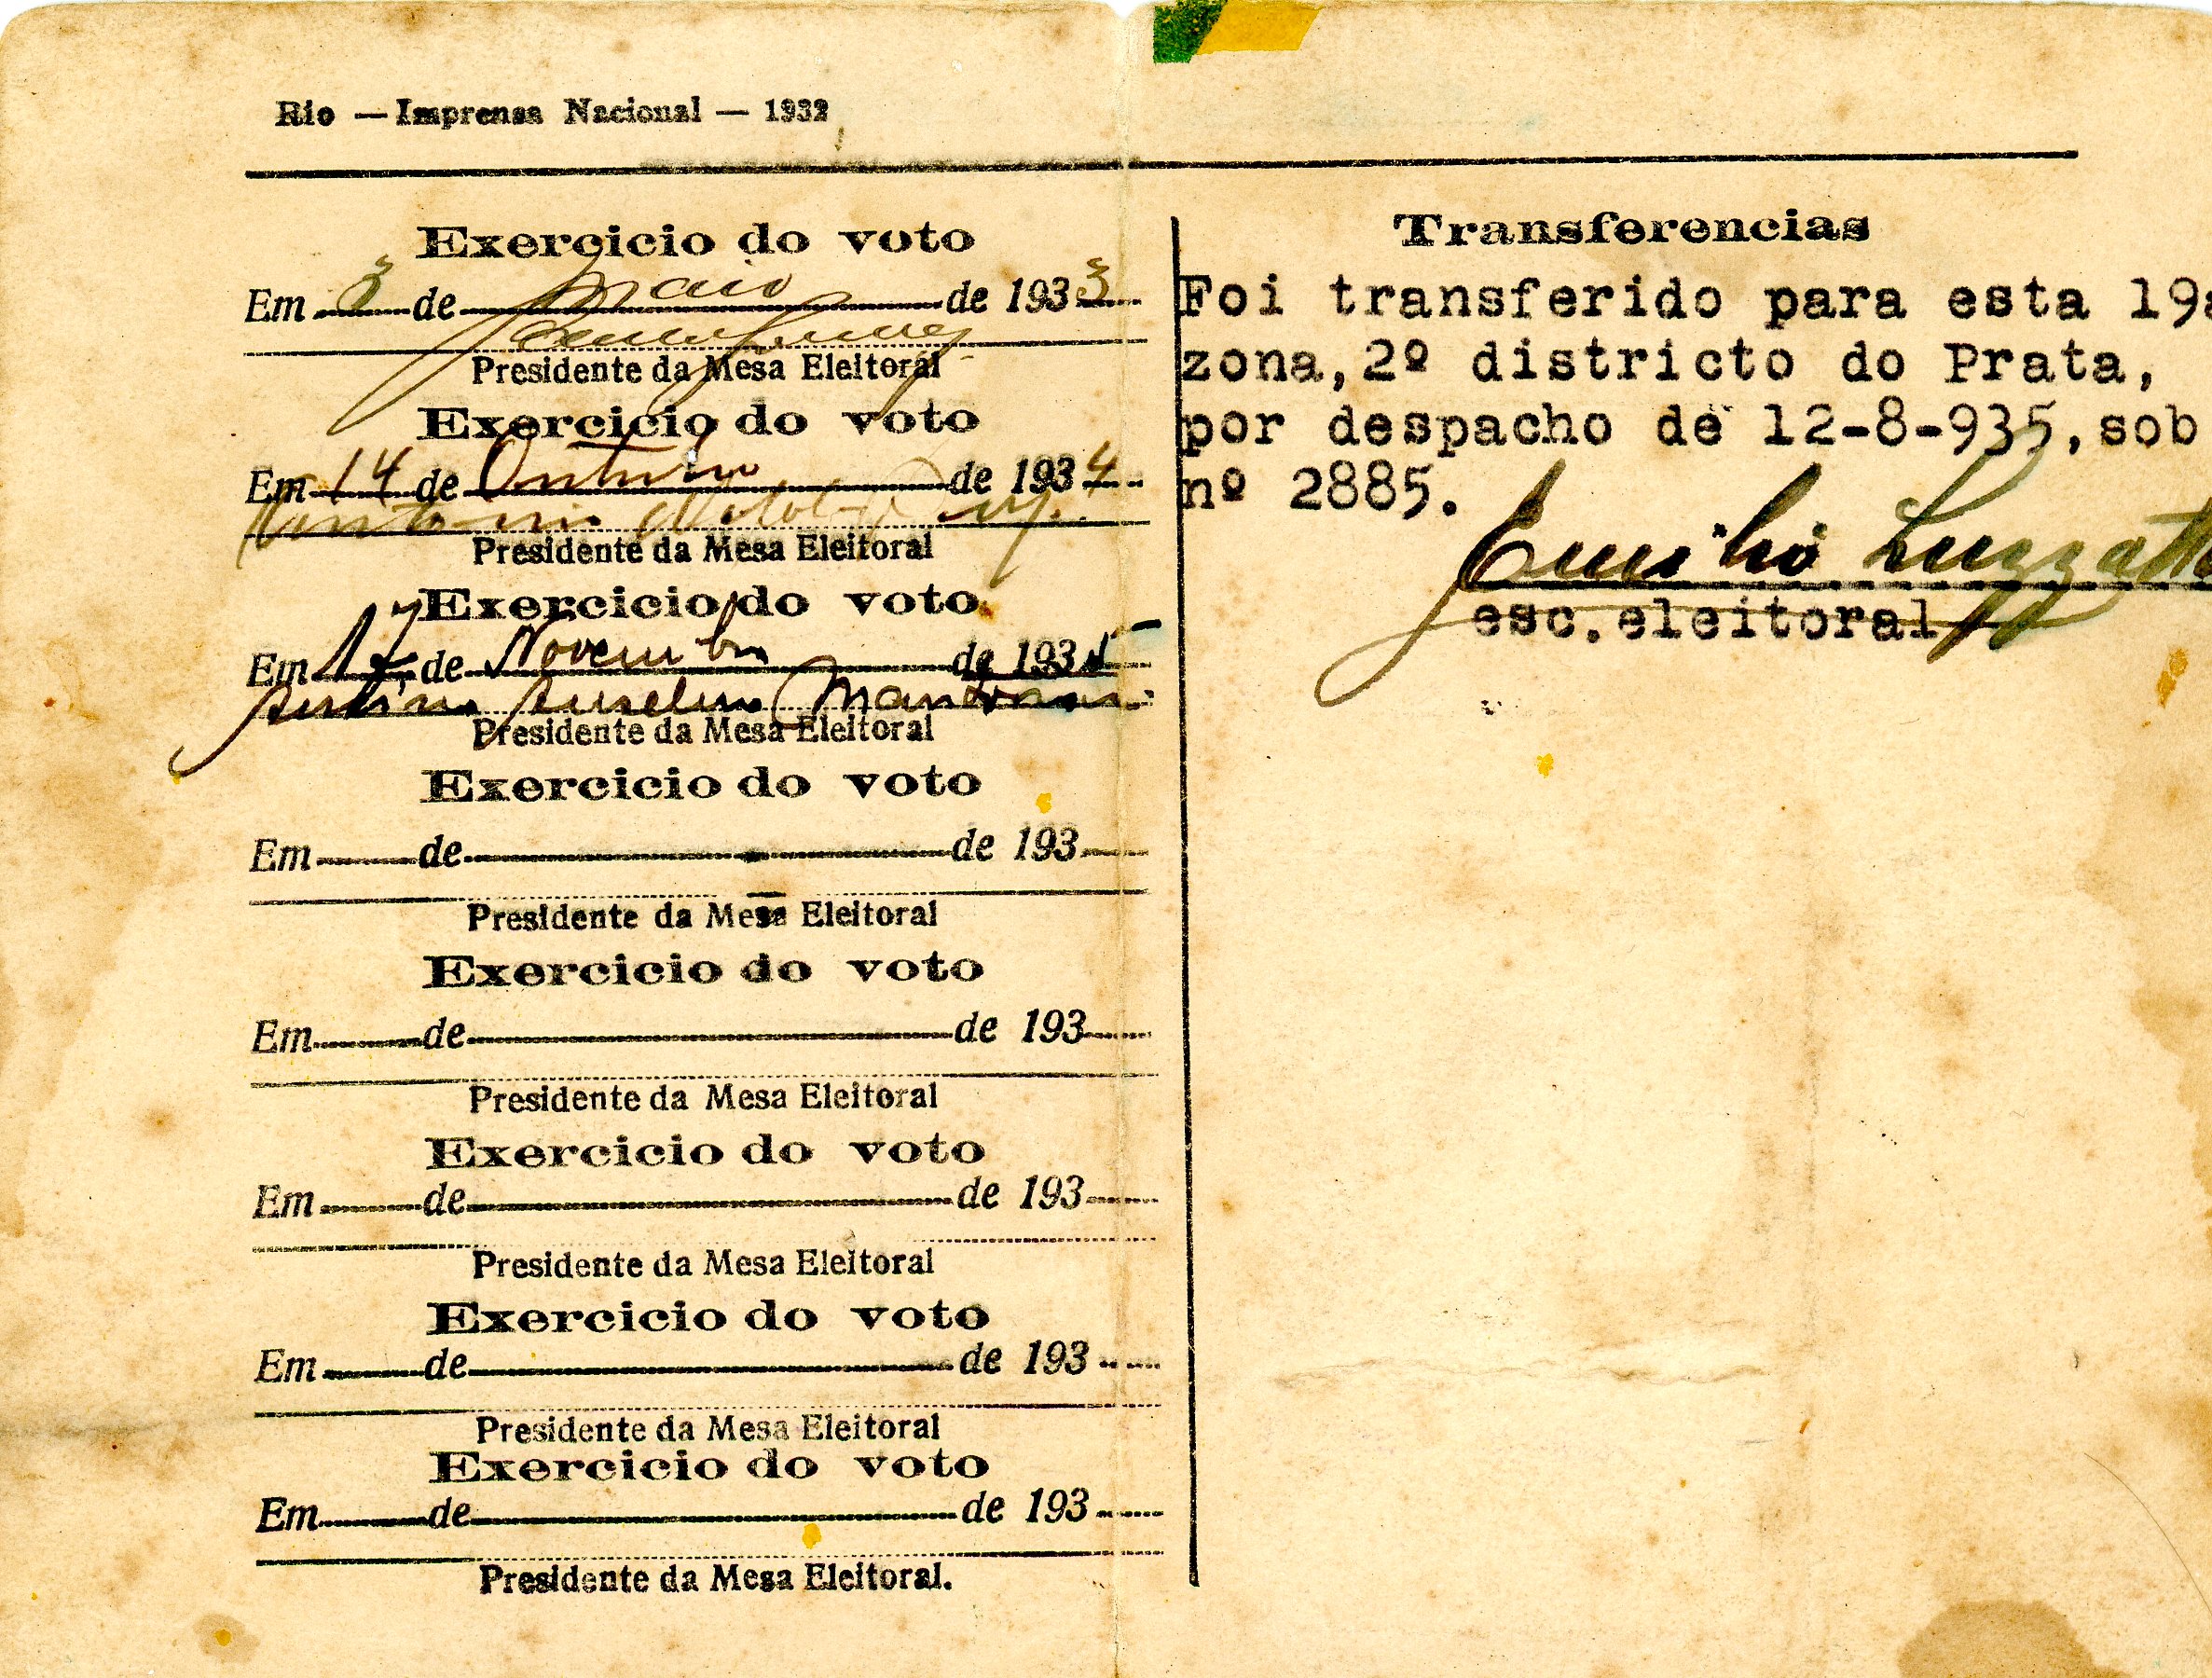 Rio — Imprensa Nacional — 1932
Exercicio do voto
Em 3 de Maio de 1933
Presidente da Mesa Eleitoral
Exercicio do voto
Em 14 de Outubro de 1934
Antonio
Presidente da Mesa Eleitoral
Exercicio do voto
Em 17 de Novembro de 1935
Anselmo
Presidente da Mesa Eleitoral
Exercicio do voto
Em de de 193
Presidente da Mesa Eleitoral
Exercicio do voto
Em de de 193
Presidente da Mesa Eleitoral
Exercicio do voto
Em de de 193
Presidente da Mesa Eleitoral
Exercicio do voto
Em de de 193
Presidente da Mesa Eleitoral
Exercicio do voto
Em de de 193
Presidente da Mesa Eleitoral.
Transferencias
Foi transferido para esta 19a
zona, 2º districto do Prata,
por despacho de 12-8-935, sob
nº 2885.
Emilio Luzzatto
esc. eleitoral